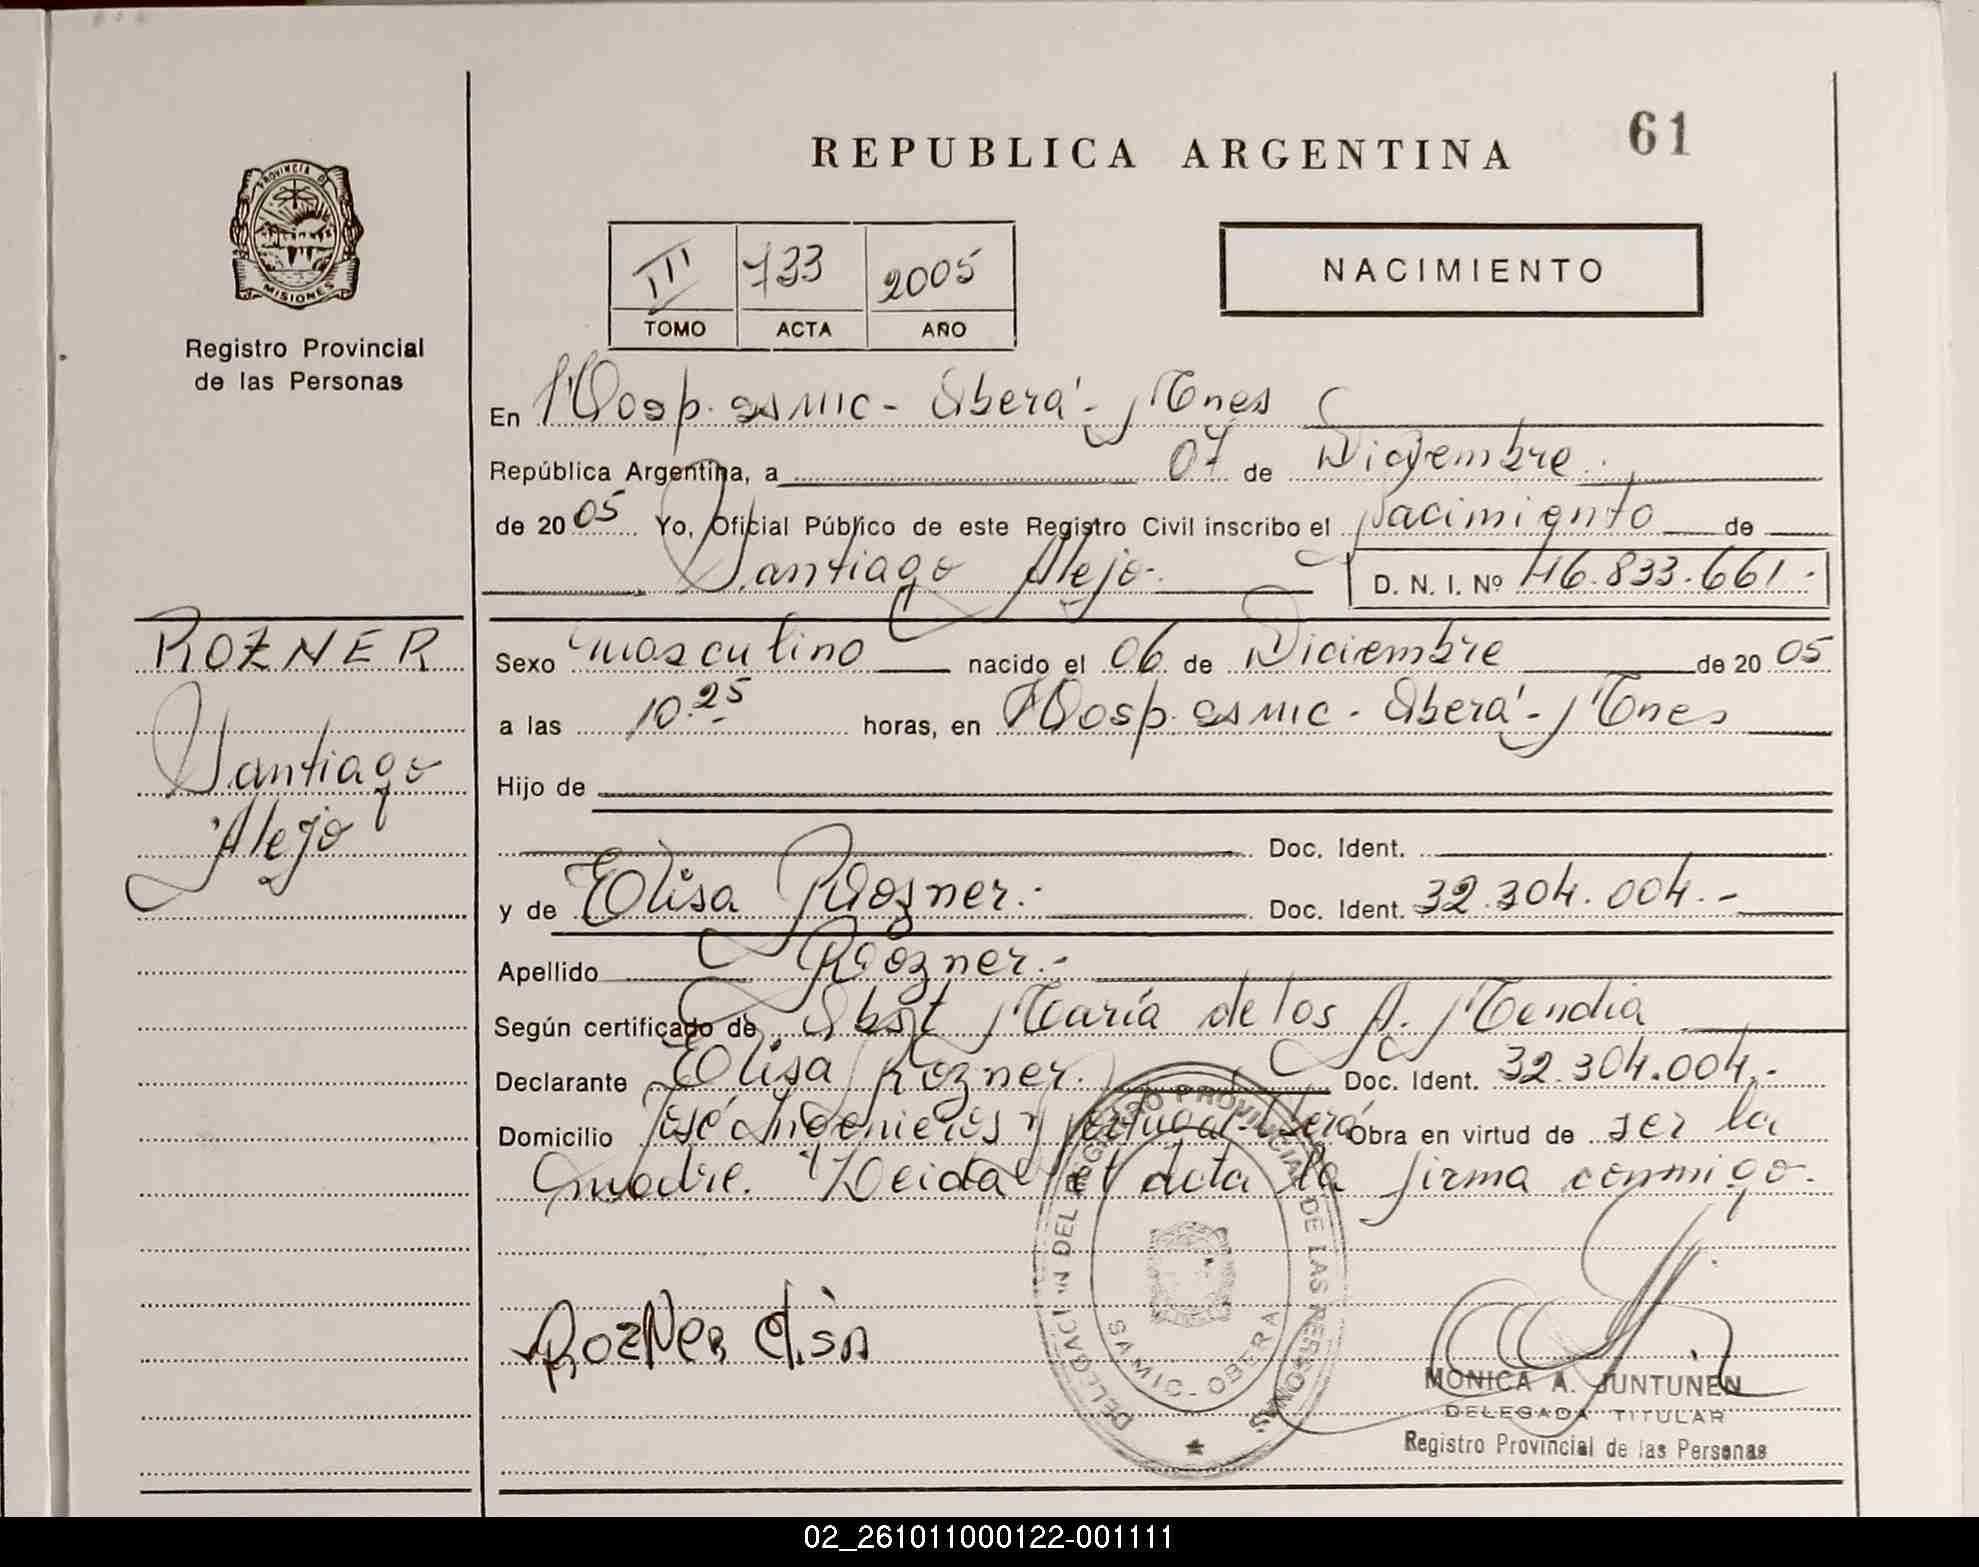 61
REPUBLICA ARGENTINA
PROVINCIA DE
MISIONES
Registro Provincial
de las Personas
III 733 2005
TOMO ACTA AÑO
NACIMIENTO
En Hosp. SAMIC - Oberá - Mnes
República Argentina, a 07 de Diciembre
de 2005 Yo, Oficial Público de este Registro Civil inscribo el Nacimiento de
Santiago Alejo. D. N. I. Nº 46.833.661.-
ROZNER
Santiago
Alejo
Sexo masculino nacido el 06 de Diciembre de 2005
a las 10.25 horas, en Hosp. SAMIC - Oberá - Mnes
Hijo de
Doc. Ident.
y de Elisa Rozner.- Doc. Ident. 32.304.004.-
Apellido Rozner.-
Según certificado de Obst María de los A. Mendia
Declarante Elisa Rozner. Doc. Ident. 32.304.004.-
Domicilio José Ingenieros y Portugal-Oberá Obra en virtud de ser la
madre. Leida el acta la firma conmigo.
ROZNER ElisA
DELEGACION DEL REGISTRO PROVINCIAL DE LAS PERSONAS
SAMIC - OBERA
MONICA A. JUNTUNEN
DELEGADA TITULAR
Registro Provincial de las Personas
02_261011000122-001111